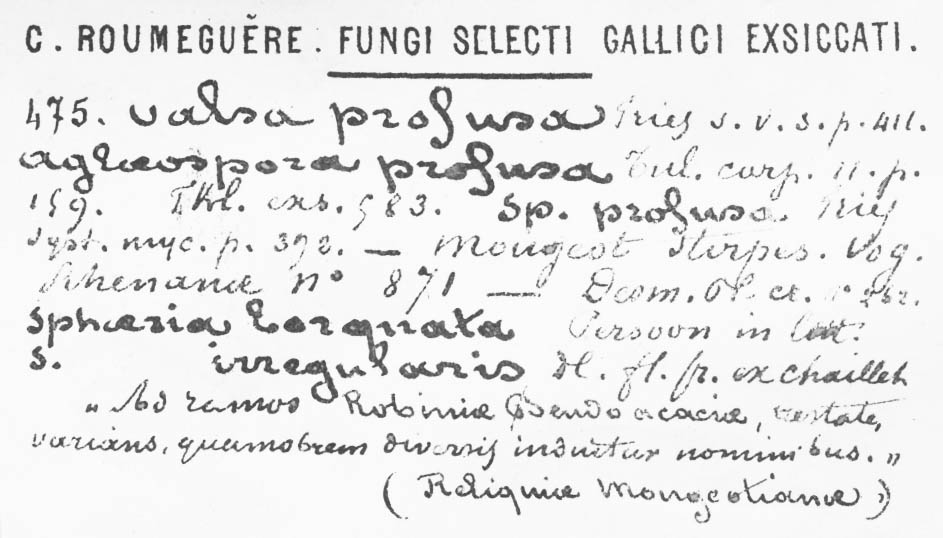 C. ROUMEGUĔRE. FUNGI SELECTI GALLICI EXSICCATI.
475. Valsa profusa Fries s. v. s. p. 411.
aglaospora profusa Tul. carp. 11. p.
159. Fkl. exs. 583. Sp. profusa Fries
syst. myc. p. 392. — Mougeot Stirpes. Vog.
Rhenanæ N° 871 — Desm. Pl. cr. n°
Sphæria torquata Persoon in litt.
S. irregularis D. fl. fr. ex chaillet
„ Ad ramos Robiniæ Pseudo acaciæ, æstate,
varians, quamobrem diversis induitur nominibus. „
( Reliquiæ Mougeotianæ )